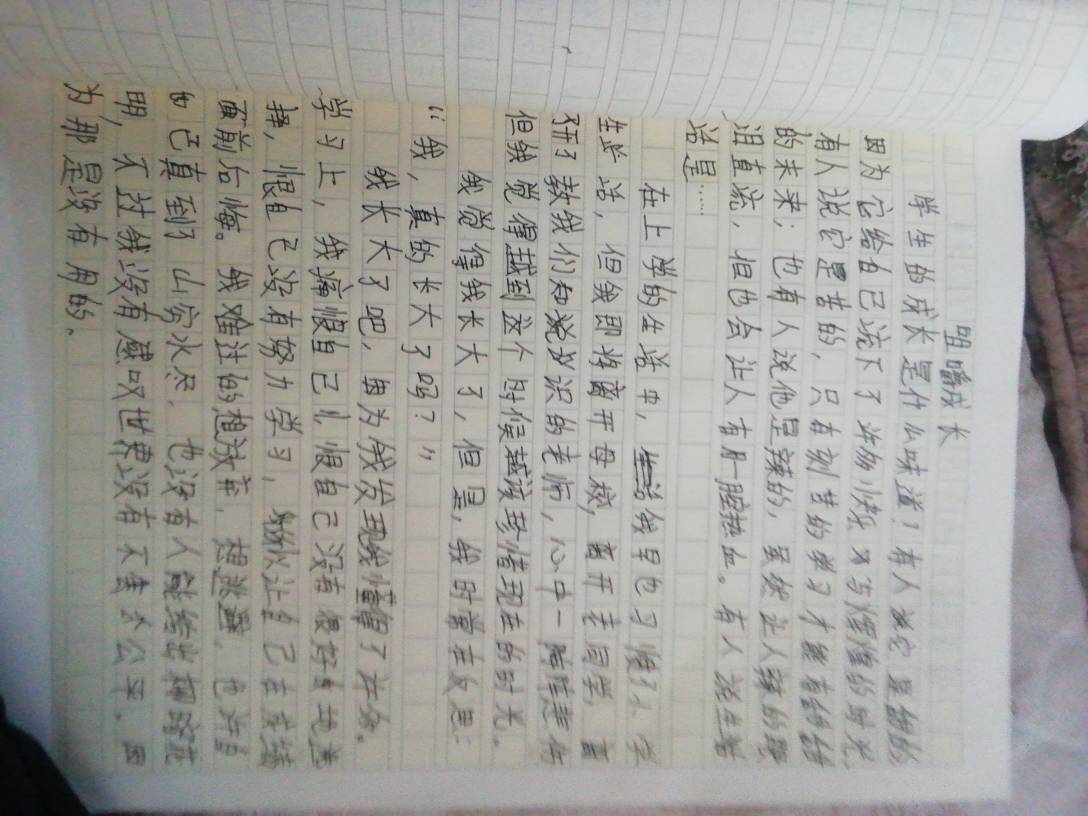 咀嚼成长
学生的成长是什么味道！有人说它是甜的
因为它给自己流下了许多小欢 与辉煌的时光
有人说它是苦的，只有刻苦的学习才能有好的
的未来；也有人说他是辣的，虽然让人辣的眼
泪直流，但也会让人有月一腔热血。有人说生活
活是……
在上学的生活中，我早也习惯了 学
生生活，但我即将离开母校，离开老同学，离
开了教我们知识的老师，心中一阵
但我觉得越到这个时候越该珍惜现在的时光。
我觉得我长大了，但是，我时常在反思：
“我，真的长大了吗？”
我长大了吧，因为我发现我懂得了许多。
学习上，我痛恨自己，恨自己没有很好
择，恨自己没有努力学习， 以让自己在成绩
面前后悔。我难过的想放弃，想逃避，也许自
自己真到了山穷水尽，也没有人能给出柳暗花
明，不过我没有感叹世界没有 公平，因
为那是没有用的、